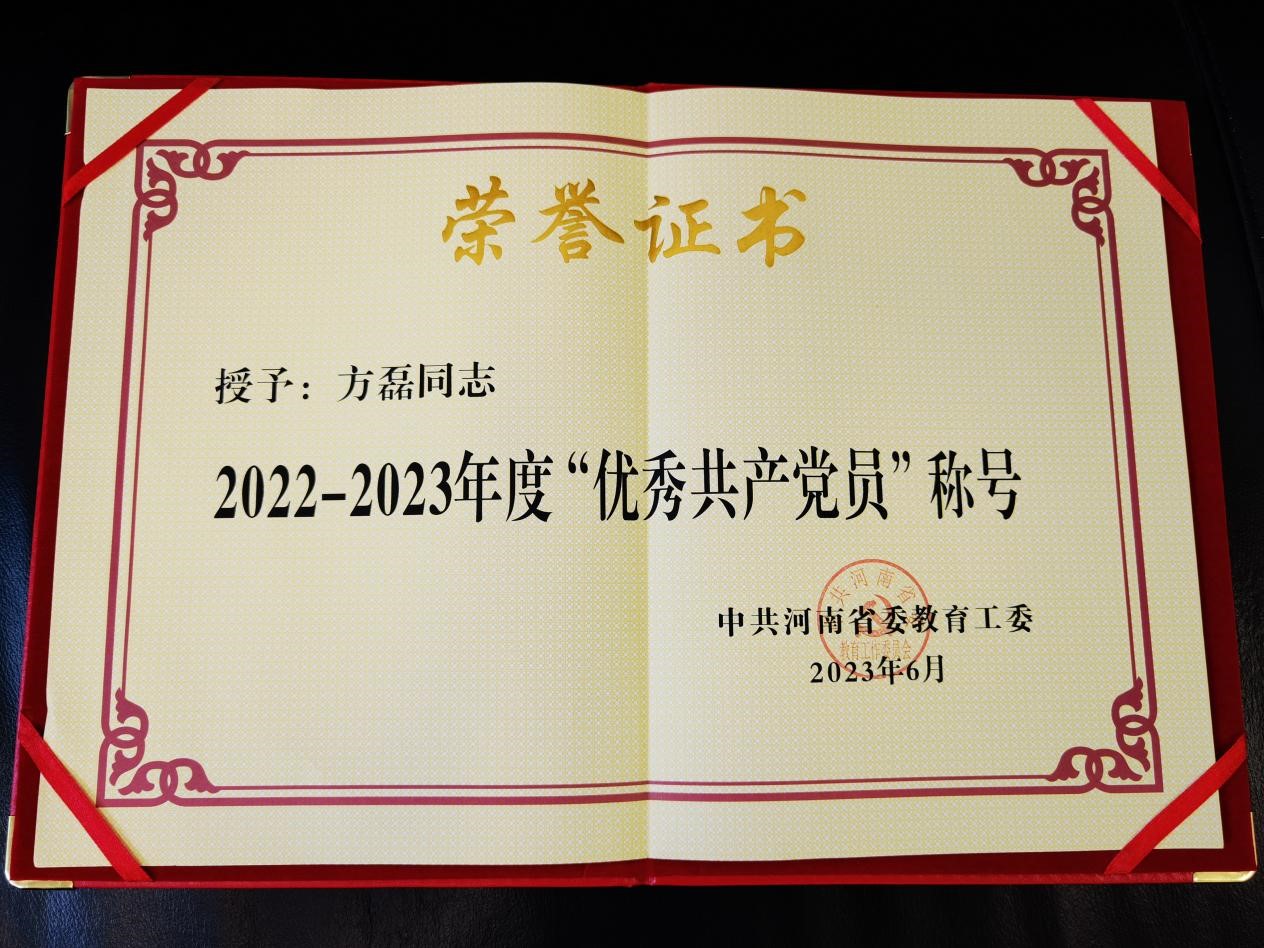 荣誉证书
授予：方磊同志
2022-2023年度“优秀共产党员”称号
中共河南省委教育工委
2023年6月
共河南省
教育工作委员会